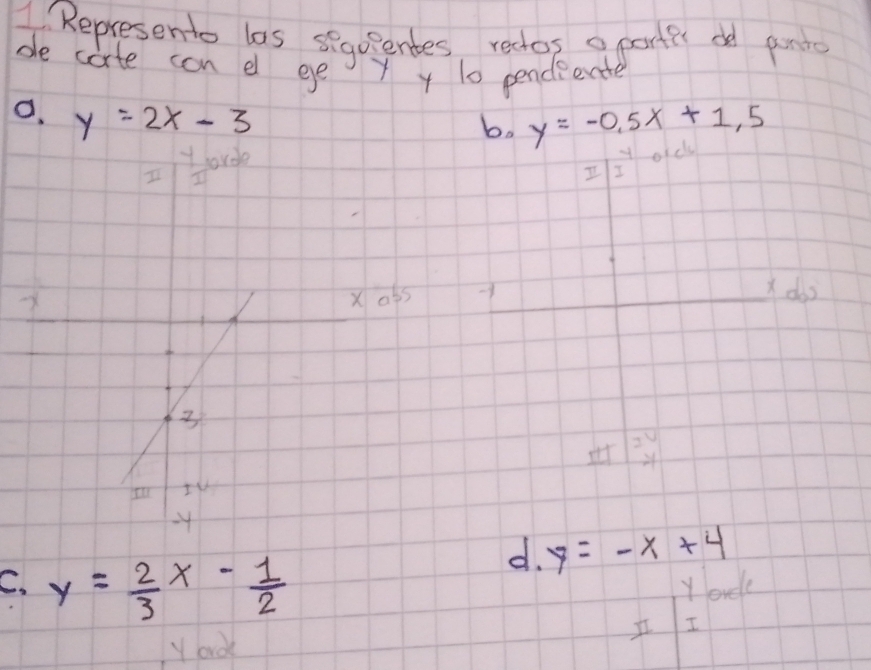 1. Represento las siguientes rectas a partir del punto
de corte con el eje y y la pendiente
a. y = 2x - 3
b. y = -0,5x + 1,5
y orde
II I
y orde
II I
-x x abs
-x x abs
-3
III IV
-y
III IV
-y
c. y = 2/3 x - 1/2
d. y = -x + 4
y orde
y orde
II I